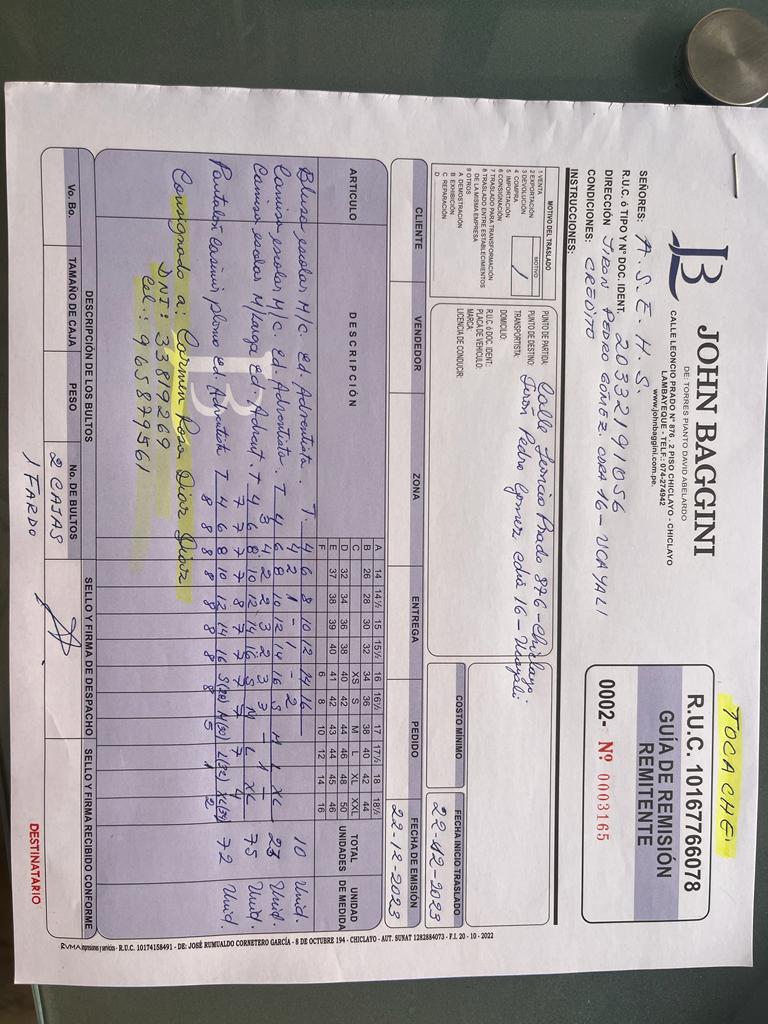 TOCACHE
JOHN BAGGINI
DE: TORRES PIANTO DAVID ABELARDO
CALLE LEONCIO PRADO N° 876 - 2 PISO CHICLAYO - CHICLAYO
LAMBAYEQUE - TELF.: 074-274942
www.johnbaggini.com.pe.
R.U.C. 10167766078
GUÍA DE REMISIÓN
REMITENTE
0002- Nº 0003165
SEÑORES: A.S.E.H.S.
R.U.C. ó TIPO Y N° DOC. IDENT. 20332191056
DIRECCIÓN JIRON PEDRO GOMEZ CDRA 16 - UCAYALI
CONDICIONES: CREDITO
INSTRUCCIONES:
MOTIVO DEL TRASLADO
1 VENTA
2 EXPORTACIÓN
3 DEVOLUCIÓN
4 COMPRA
5 IMPORTACIÓN
6 CONSIGNACIÓN
7 TRASLADO PARA TRANSFORMACIÓN
8 TRASLADO ENTRE ESTABLECIMIENTOS
DE LA MISMA EMPRESA
9 OTROS
A DEMOSTRACIÓN
B EXHIBICIÓN
C REPARACIÓN
D
MOTIVO
1
PUNTO DE PARTIDA: Calle Leoncio Prado 876 - Chiclayo.
PUNTO DE DESTINO: Jirón Pedro Gomez cdra 16 - Ucayali
TRANSPORTISTA:
DOMICILIO:
R.U.C. ó DOC. IDENT:
PLACA DE VEHICULO:
MARCA:
LICENCIA DE CONDUCIR:
COSTO MÍNIMO
FECHA INICIO TRASLADO
22-12-2023
CLIENTE VENDEDOR ZONA ENTREGA PEDIDO FECHA DE EMISIÓN
22-12-2023
ARTICULO DESCRIPCIÓN TOTAL UNIDADES UNIDAD DE MEDIDA
A 14 14½ 15 15½ 16 16½ 17 17½ 18 18½
B 26 28 30 32 34 36 38 40 42 44
C XS S M L XL XXL
D 32 34 36 38 40 42 44 46 48 50
E 37 38 39 40 41 42 43 44 45 46
F 6 8 10 12 14 16
Blusa escolar M/C. Ed. Adventista. T 4 6 8 10 12 14 16 10 Unid.
4 2 1 - 1 - 2
Camisa escolar M/C. Ed. Adventista. T 4 6 8 10 12 14 16 S M L XL 23 Unid.
3 4 2 2 3 2 3 3 - 1 -
Camisa escolar M/Larga Ed Advent. T 4 6 8 10 12 14 16 S M L XL 75 Unid.
7 7 7 7 8 7 7 7 7 7 4
Pantalon casimir plomo Ed. Adventista T 4 6 8 10 12 14 16 S(28) M(30) L(32) XL(34) 72 Unid.
8 8 8 8 8 8 8 8 5 1 2
Consignado a: Carmen Rosa Diaz Diaz
DNI: 33819269
Cel.: 965879561
DESCRIPCIÓN DE LOS BULTOS
Vo. Bo. TAMAÑO DE CAJA PESO No. DE BULTOS SELLO Y FIRMA DE DESPACHO SELLO Y FIRMA RECIBIDO CONFORME
2 CAJAS
1 FARDO
DESTINATARIO
RVMA impresiones y servicios - R.U.C. 10174158491 - DE: JOSÉ RUMUALDO CORNETERO GARCÍA - 8 DE OCTUBRE 194 - CHICLAYO - AUT. SUNAT 1282884073 - F.I. 20 - 10 - 2022